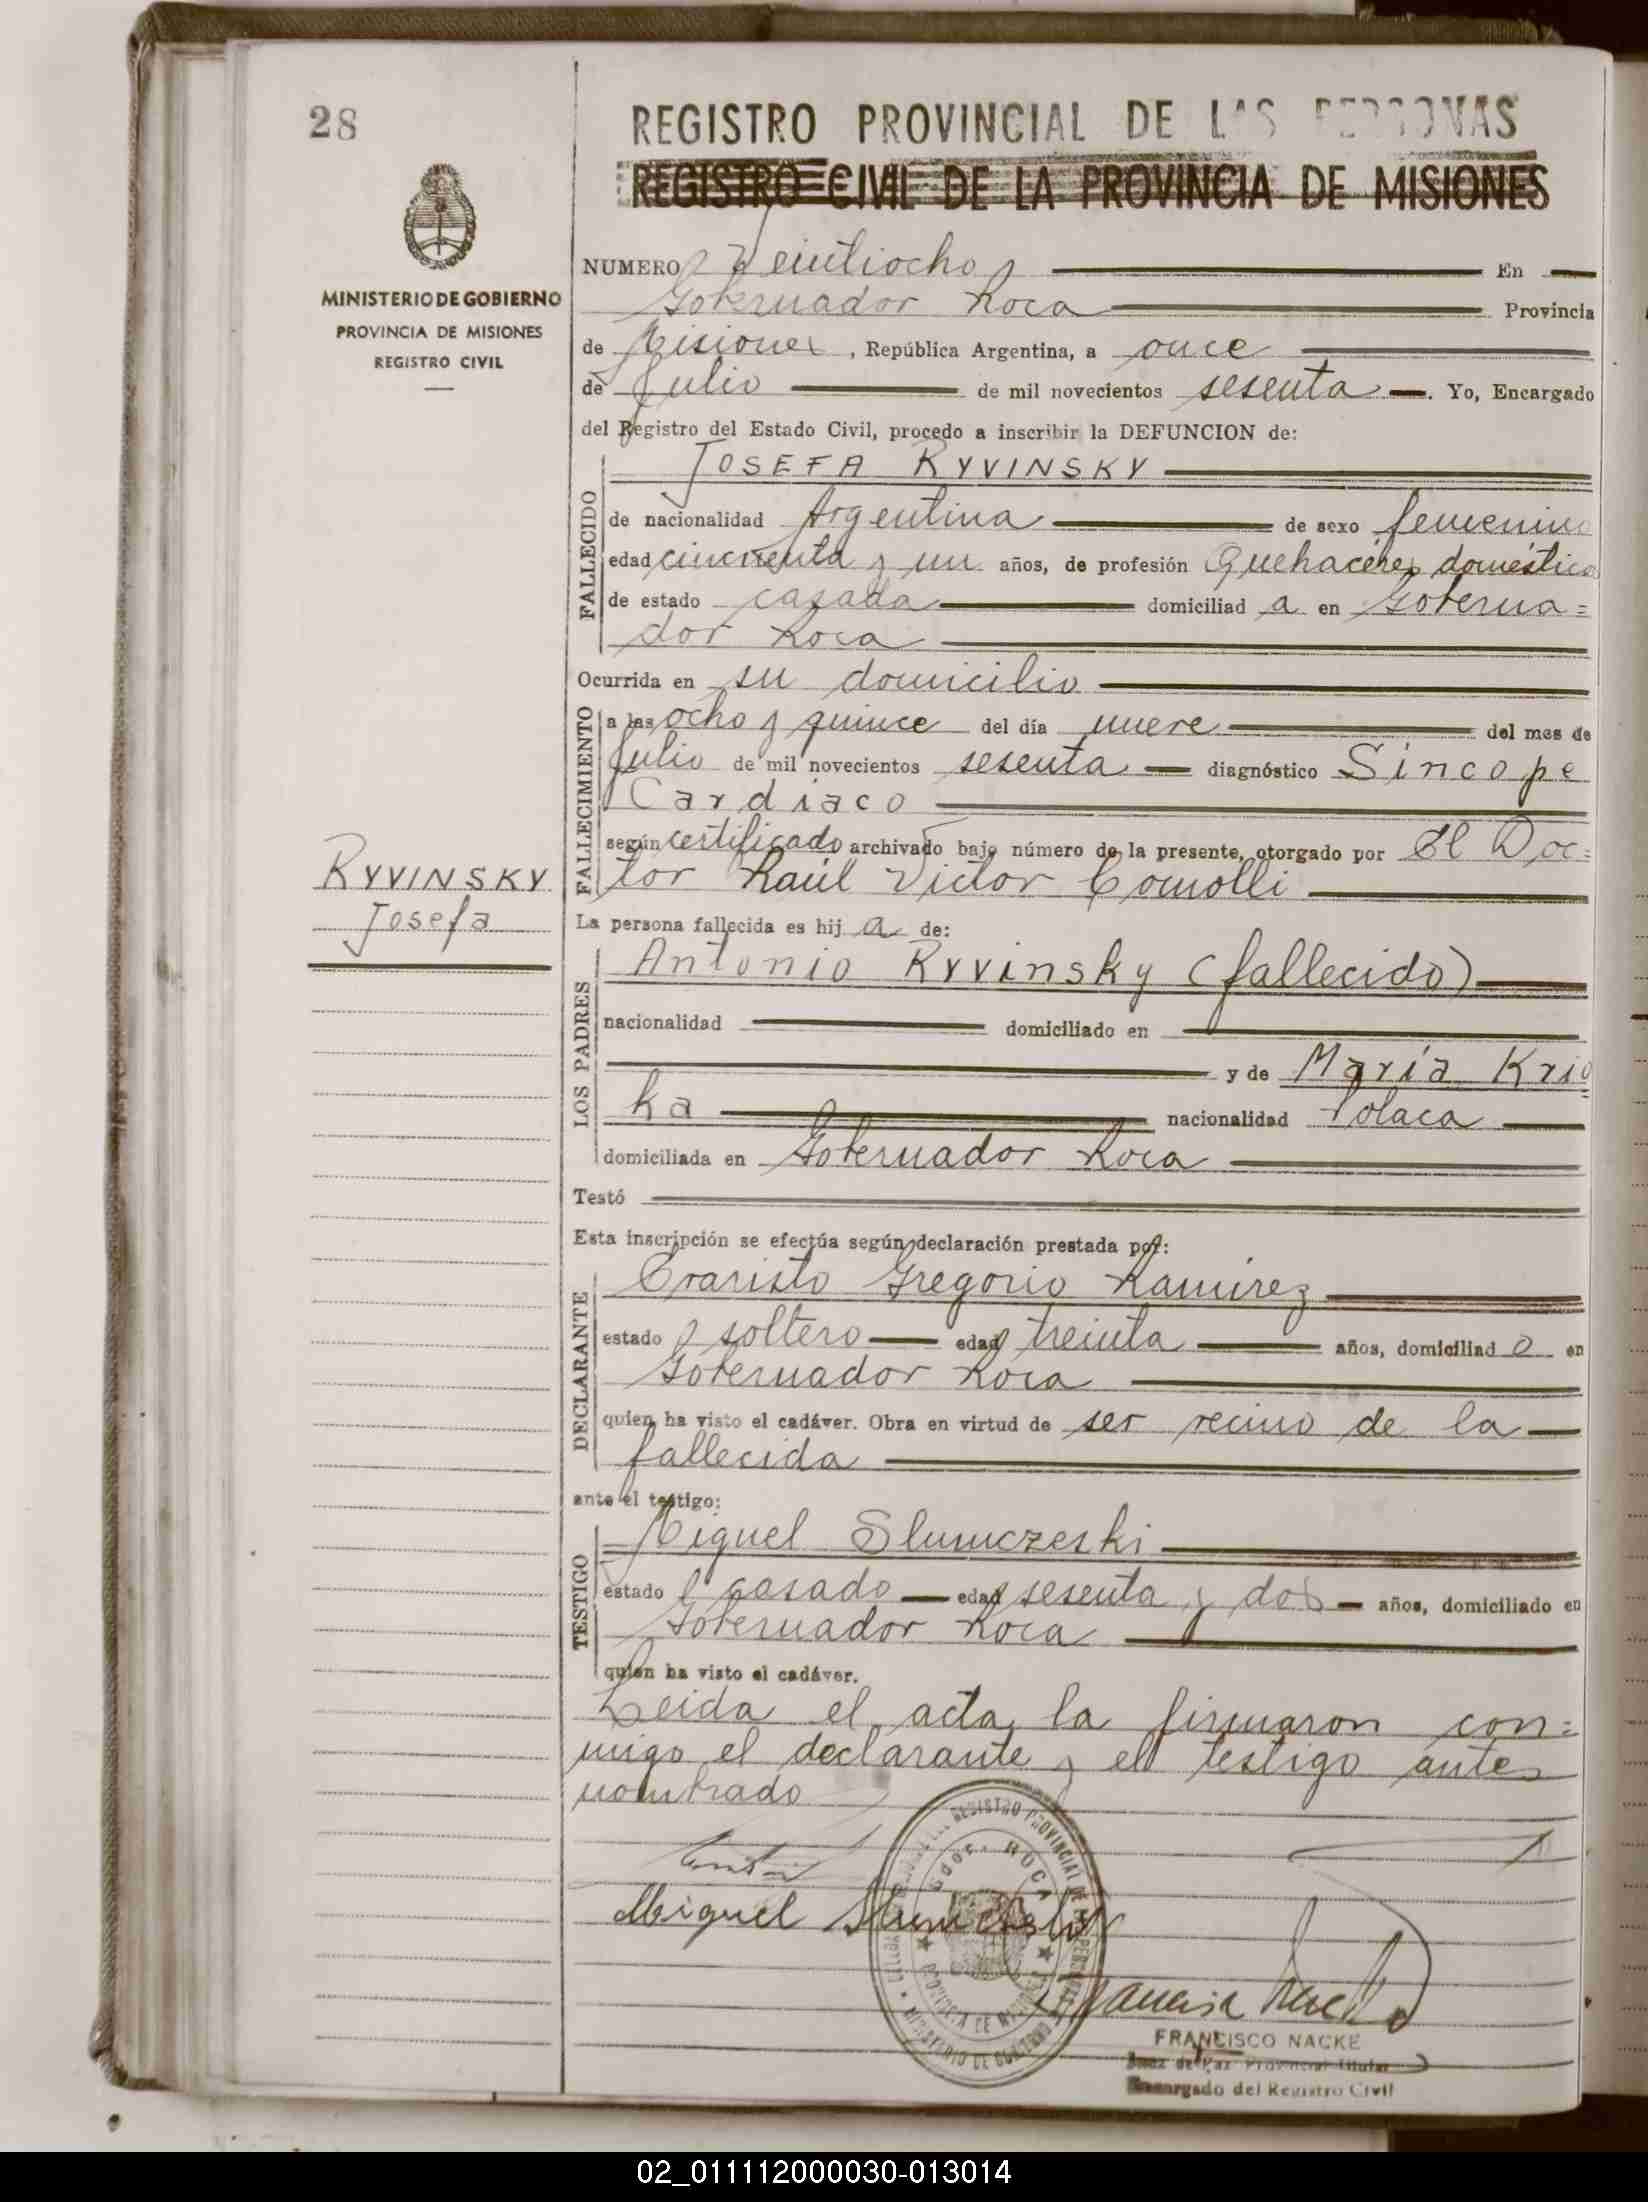 28
REGISTRO PROVINCIAL DE LAS PERSONAS
REGISTRO CIVIL DE LA PROVINCIA DE MISIONES
MINISTERIO DE GOBIERNO
PROVINCIA DE MISIONES
REGISTRO CIVIL
NUMERO Veintiocho En
Gobernador Roca Provincia
de Misiones, República Argentina, a once
de Julio de mil novecientos sesenta. Yo, Encargado
del Registro del Estado Civil, procedo a inscribir la DEFUNCION de:
JOSEFA RYVINSKY
FALLECIDO
de nacionalidad Argentina de sexo femenino
edad cincuenta y un años, de profesión Quehaceres doméstico
de estado casada domiciliad a en Goberna=
dor Roca
Ocurrida en su domicilio
FALLECIMIENTO
a las ocho y quince del día nueve del mes de
Julio de mil novecientos sesenta diagnóstico Sincope
Cardiaco
según certificado archivado bajo número de la presente, otorgado por El Doc=
tor Raúl Victor Comolli
RYVINSKY
Josefa
La persona fallecida es hij a de:
LOS PADRES
Antonio Ryvinsky (fallecido)
nacionalidad domiciliado en
y de María Krio
ka nacionalidad Polaca
domiciliada en Gobernador Roca
Testó
Esta inscripción se efectúa según declaración prestada por:
DECLARANTE
Evaristo Gregorio Ramirez
estado soltero edad treinta años, domiciliad o en
Gobernador Roca
quien ha visto el cadáver. Obra en virtud de ser vecino de la
fallecida
ante el testigo:
TESTIGO
Miguel Slumczeski
estado casado edad sesenta y dos años, domiciliado en
Gobernador Roca
quien ha visto el cadáver.
Leida el acta, la firmaron con=
migo el declarante y el testigo antes
nombrado
Miguel
REGISTRO PROVINCIAL DE LAS PERSONAS
GDOR. ROCA
PROVINCIA DE MISIONES
MINISTERIO DE GOBIERNO
FRANCISCO NACKE
Juez de Paz Provincial Titular
Encargado del Registro Civil
02_011112000030-013014